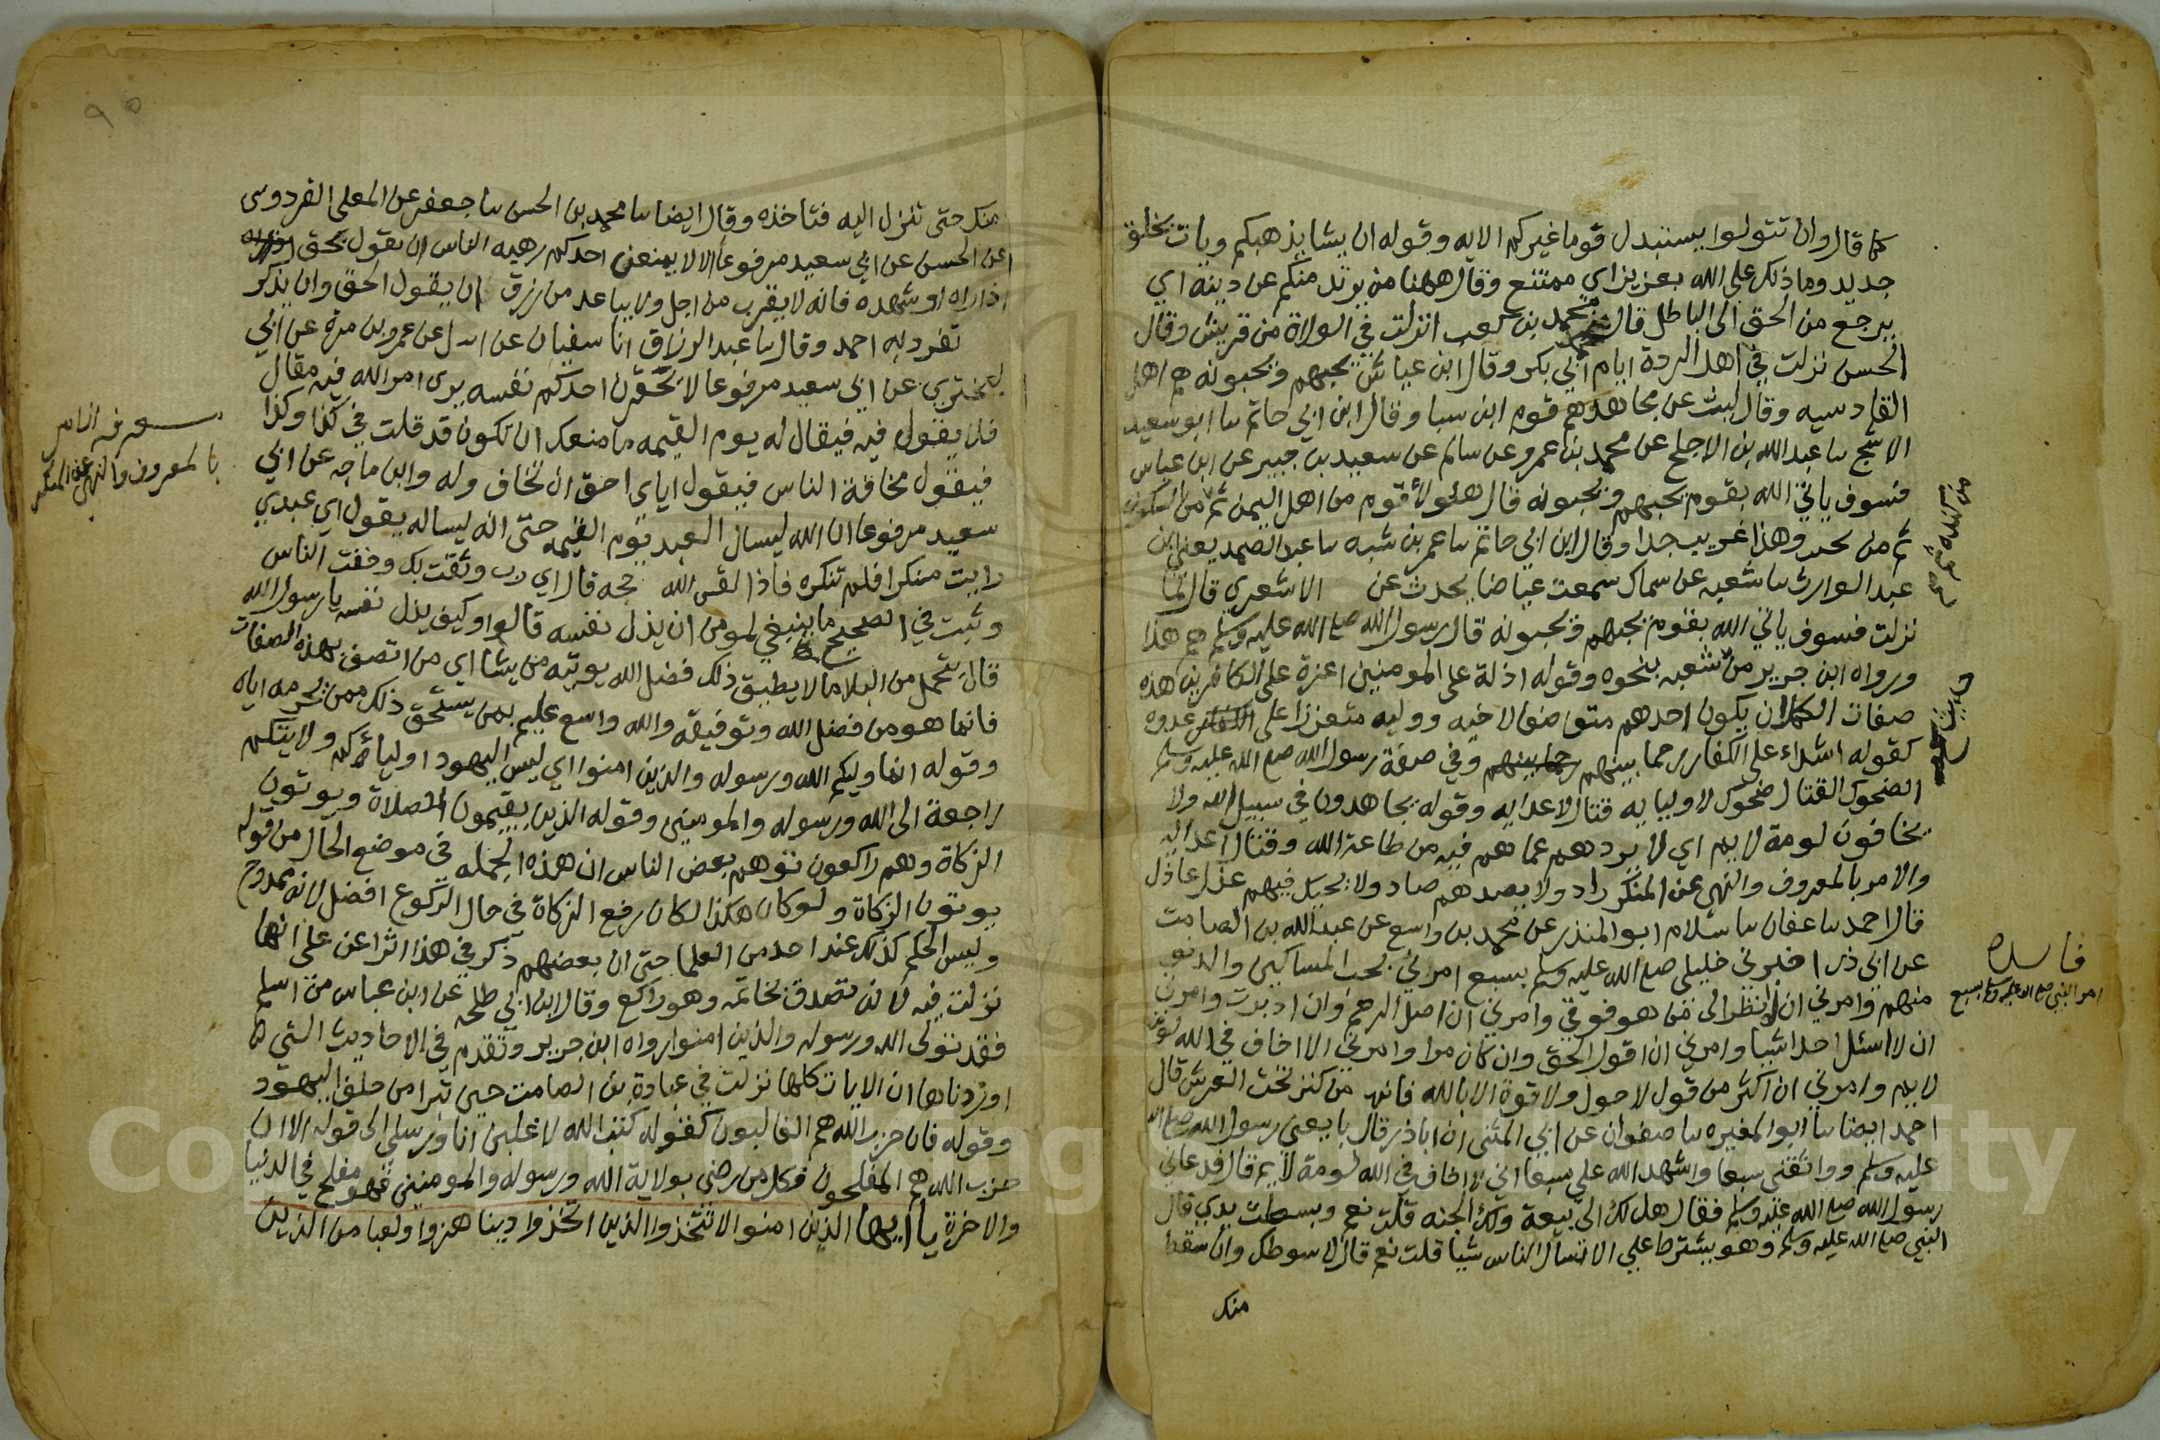 كما قال وان تتولوا يستبدل قوما غيركم الايه وقوله ان يشا يذهبكم ويات بخلق
جديد وما ذلك على الله بعزيز اي ممتنع وقال ههنا من يرتد منكم عن دينه اي
يرجع من الحق الى الباطل قال محمد بن كعب انزلت في الولاة من قريش وقال
الحسن نزلت في اهل الردة ايام ابي بكر وقال ابن عياش يحبهم ويحبونه هم اهل
القادسيه وقال ليث عن مجاهد هم قوم ابن سبا وقال ابن ابي حاتم سا ابو سعيد
الاشج سا عبد الله بن الاجلح عن محمد بن عمرو عن سالم عن سعيد بن جبير عن ابن عباس
فسوف ياتي الله بقوم يحبهم ويحبونه قال هولا قوم من اهل اليمن ثم من السكون
ثم من وهذا غريب جدا وقال ابن ابي حاتم سا عمر بن شبه سا عبد الصمد يعني ابن
عبد الوارث سا شعبه عن سماك سمعت عياضا يحدث عن الاشعري قال لما
نزلت فسوف ياتي الله بقوم يحبهم ويحبونه قال رسول الله صلى الله عليه وسلم هم هذا
ورواه ابن جرير من شعبه بنحوه وقوله اذلة على المومنين اعزة على الكافرين هذه
صفات الكمل ان يكون احدهم متواضعا لاخيه ووليه متعززا على عدوه
كقوله اشداء على الكفار رحما بينهم وفي صفة رسول الله صلى الله عليه وسلم
الضحوك القتال ضحوك لاوليايه قتال لاعدايه وقوله يجاهدون في سبيل الله ولا
يخافون لومة لايم اي لا يردهم عما هم فيه من طاعة الله وقتال اعدايه
والامر بالمعروف والنهي عن المنكر راد ولا يصدهم صاد ولا يحيك فيهم عذل عاذل
قال احمد سا عفان سا سلام ابو المنذر عن محمد بن واسع عن عبد الله بن الصامت
عن ابي ذر اخبرني خليلي صلى الله عليه وسلم بسبع امرني بحب المساكين والدنو
منهم وامرني ان انظر الى من هو فوقي وامرني ان اصل الرحم وان ادبرت وامرني
ان لا اسئل احدا شيا وامرني ان اقول الحق وان كان مرا وامرني الا اخاف في الله لومة
لايم وامرني ان اكثر من قول لاحول ولا قوة الا بالله فانهن من كنز تحت العرش قال
احمد ايضا سا ابو المغيره سا صفوان عن ابي المثنى ان ابا ذر قال بايعني رسول الله صلى الله
عليه وسلم وواثقني سبعا واشهد الله علي سبعا اني لا اخاف في الله لومة لايم قال فدعاني
رسول الله صلى الله عليه وسلم فقال هل لك الى بيعة ولك الجنه قلت نعم وبسطت يدي قال
النبي صلى الله عليه وسلم وهو يشترط علي الا تسال الناس شيا قلت نعم قال لا سوطك وان سقط
منك
فا
امر النبي صلى الله عليه وسلم بسبع
منك حتى تنزل اليه فتاخذه وقال ايضا سا محمد بن الحسن سا جعفر عن المعلى الفردوسي
عن الحسن عن ابي سعيد مرفوعا الا لا يمنعن احدكم رهبه الناس ان يقول بحق
اذا راه او شهده فانه لا يقرب من اجل ولا يباعد من رزق ان يقول الحق وان يذكر
تفرد به احمد وقال سا عبد الرزاق انا سفيان عن عن عمرو بن مرة عن ابي
البختري عن ابي سعيد مرفوعا لا يحقرن احدكم نفسه يرى امر الله فيه مقال
فلا يقول فيه فيقال له يوم القيمه ما منعك ان تكون قد قلت في كذا وكذا
فيقول مخافة الناس فيقول اياي احق ان تخاف وله وابن ماجه عن ابي
سعيد مرفوعا ان الله ليسال العبد يوم القيمه حتى انه ليساله يقول اي عبدي
رايت منكرا فلم تنكره فاذا لقن الله حجه قال اي رب وثقت بك وخفت الناس
وثبت في الصحيح ما ينبغي لمومن ان يذل نفسه قالوا وكيف يذل نفسه يا رسول الله
قال يتحمل من البلا ما لا يطيق ذلك فضل الله يوتيه من يشا اي من اتصف بهذه الصفات
فانما هو من فضل الله وتوفيقه والله واسع عليم بمن يستحق ذلك ممن يحرمه اياه
وقوله انما وليكم الله ورسوله والذين امنوا اي ليس اليهود اولياؤكم ولايتكم
راجعة الى الله ورسوله والمومنين وقوله الذين يقيمون الصلاة ويوتون
الزكاة وهم راكعون توهم بعض الناس ان هذه الجمله في موضع الحال من قوله
يوتون الزكاة ولو كان هكذا لكان رفع الزكاة في حال الركوع افضل لانه ممدوح
وليس الحكم كذلك عند احد من العلما حتى ان بعضهم ذكر في هذا اثرا عن علي انها
نزلت فيه لانه تصدق بخاتمه وهو راكع وقال ابن ابي طلحه عن ابن عباس من اسلم
فقد تولى الله ورسوله والذين امنوا رواه ابن جرير وتقدم في الاحاديث التي
اوردناها ان الايات كلها نزلت في عبادة بن الصامت حين تبرا من حلف اليهود
وقوله فان حزب الله هم الغالبون كقوله كتب الله لاغلبن انا ورسلي الى قوله الا ان
حزب الله هم المفلحون فكل من رضي بولاية الله ورسوله والمومنين فهو مفلح في الدنيا
والاخرة يا ايها الذين امنوا لا تتخذوا الذين اتخذوا دينا هزوا ولعبا من الذين
بالمعروف والنهي عن المنكر
٩٥